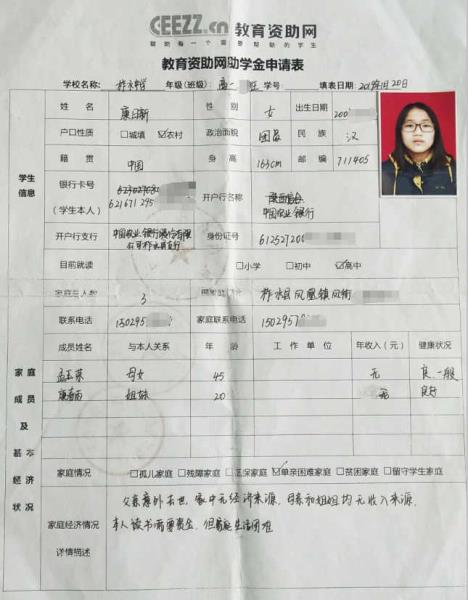 CEEZZ.cn 教育资助网
帮助每一个需要帮助的学生
教育资助网助学金申请表
学校名称: 柞水中学 年级(班级): 高一 班 学号: 填表日期: 20日
姓名 康 新 性别 女 出生日期 200
户口性质 □城填 ☑农村 政治面貌 团员 民族 汉
学生信息
籍贯 中国 身高 163cm 邮编 711405
银行卡号 (学生本人) 621671 295 开户行名称 中国农业银行
开户行支行 中国农业银行股份有限公司柞水县支行 身份证号 612527200
目前就读 □小学 □初中 ☑高中
家庭总人数 3 柞水县凤凰镇凤街
联系电话 150295 家庭联系电话 150295
家庭成员及基本经济状况
成员姓名 与本人关系 年龄 工作单位 年收入(元) 健康状况
孟玉荣 母女 45 无 良 一般
姐妹 20 无 良好
家庭情况 □孤儿家庭 □残障家庭 □低保家庭 ☑单亲困难家庭 □贫困家庭 □留守学生家庭
家庭经济情况详情描述
父亲意外去世,家中无经济来源,母亲和姐姐均无收入来源,
本人读书需要资金,但家庭生活困难